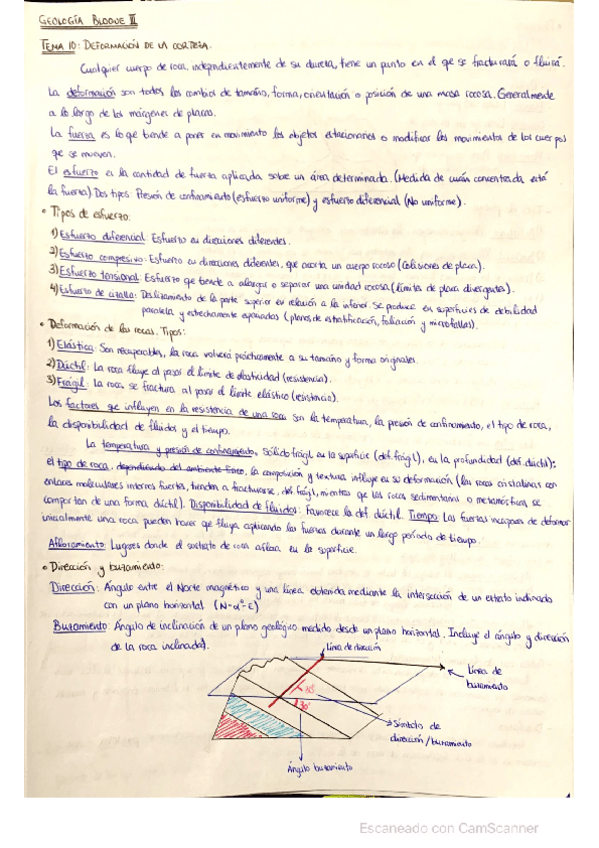 GEOLOGÍA BLOQUE III
TEMA 10: DEFORMACIÓN DE LA CORTEZA.
Cualquier cuerpo de roca, independientemente de su dureza, tiene un punto en el que se fracturará o fluirá.
La deformación son todos los cambios de tamaño, forma, orientación o posición de una masa rocosa. Generalmente
a lo largo de los márgenes de placas.
La fuerza es lo que tiende a poner en movimiento los objetos estacionarios o modificar los movimientos de los cuerpos
que se mueven.
El esfuerzo es la cantidad de fuerza aplicada sobre un área determinada. (Medida de cuán concentrada está
la fuerza) Dos tipos: Presión de confinamiento (esfuerzo uniforme) y esfuerzo diferencial (No uniforme).
• Tipos de esfuerzo:
1) Esfuerzo diferencial: Esfuerzo en direcciones diferentes.
2) Esfuerzo compresivo: Esfuerzo en direcciones diferentes, que acorta un cuerpo rocoso (colisiones de placa).
3) Esfuerzo tensional: Esfuerzo que tiende a alargar o separar una unidad rocosa (límites de placa divergentes).
4) Esfuerzo de cizalla: Deslizamiento de la parte superior en relación a la inferior. Se produce en superficies de debilidad
paralela, y estrechamente espaciadas (planos de estratificación, foliación y microfallas).
• Deformación de las rocas. Tipos:
1) Elástica: Son recuperables, la roca volverá prácticamente a su tamaño y forma originales.
2) Dúctil: La roca fluye al pasar el límite de elasticidad (resistencia).
3) Frágil: La roca se fractura al pasar el límite elástico (resistencia).
Los factores que influyen en la resistencia de una roca son la temperatura, la presión de confinamiento, el tipo de roca,
la disponibilidad de fluidos y el tiempo.
La temperatura y presión de confinamiento. Sólido frágil en la superficie (def. frágil), en la profundidad (def. dúctil):
el tipo de roca, dependiendo del ambiente físico, la composición y textura influye en su deformación (las rocas cristalinas con
enlaces moleculares internos fuertes, tienden a fracturarse, def. frágil, mientras que las rocas sedimentarias o metamórficas, se
comportan de una forma dúctil). Disponibilidad de fluidos: Favorece la def. dúctil. Tiempo: Las fuerzas incapaces de deformar
inicialmente una roca pueden hacer que fluya aplicando las fuerzas durante un largo período de tiempo.
Afloramiento: Lugares donde el sustrato de roca aflora en la superficie.
• Dirección y buzamiento:
Dirección: Ángulo entre el Norte magnético y una línea obtenida mediante la intersección de un estrato inclinado
con un plano horizontal (N-α°-E)
Buzamiento: Ángulo de inclinación de un plano geológico medido desde un plano horizontal. Incluye el ángulo y dirección
de la roca inclinada.
Línea de dirección
Línea de
buzamiento
30°
Símbolo de
dirección/buzamiento
Ángulo buzamiento
Escaneado con CamScanner